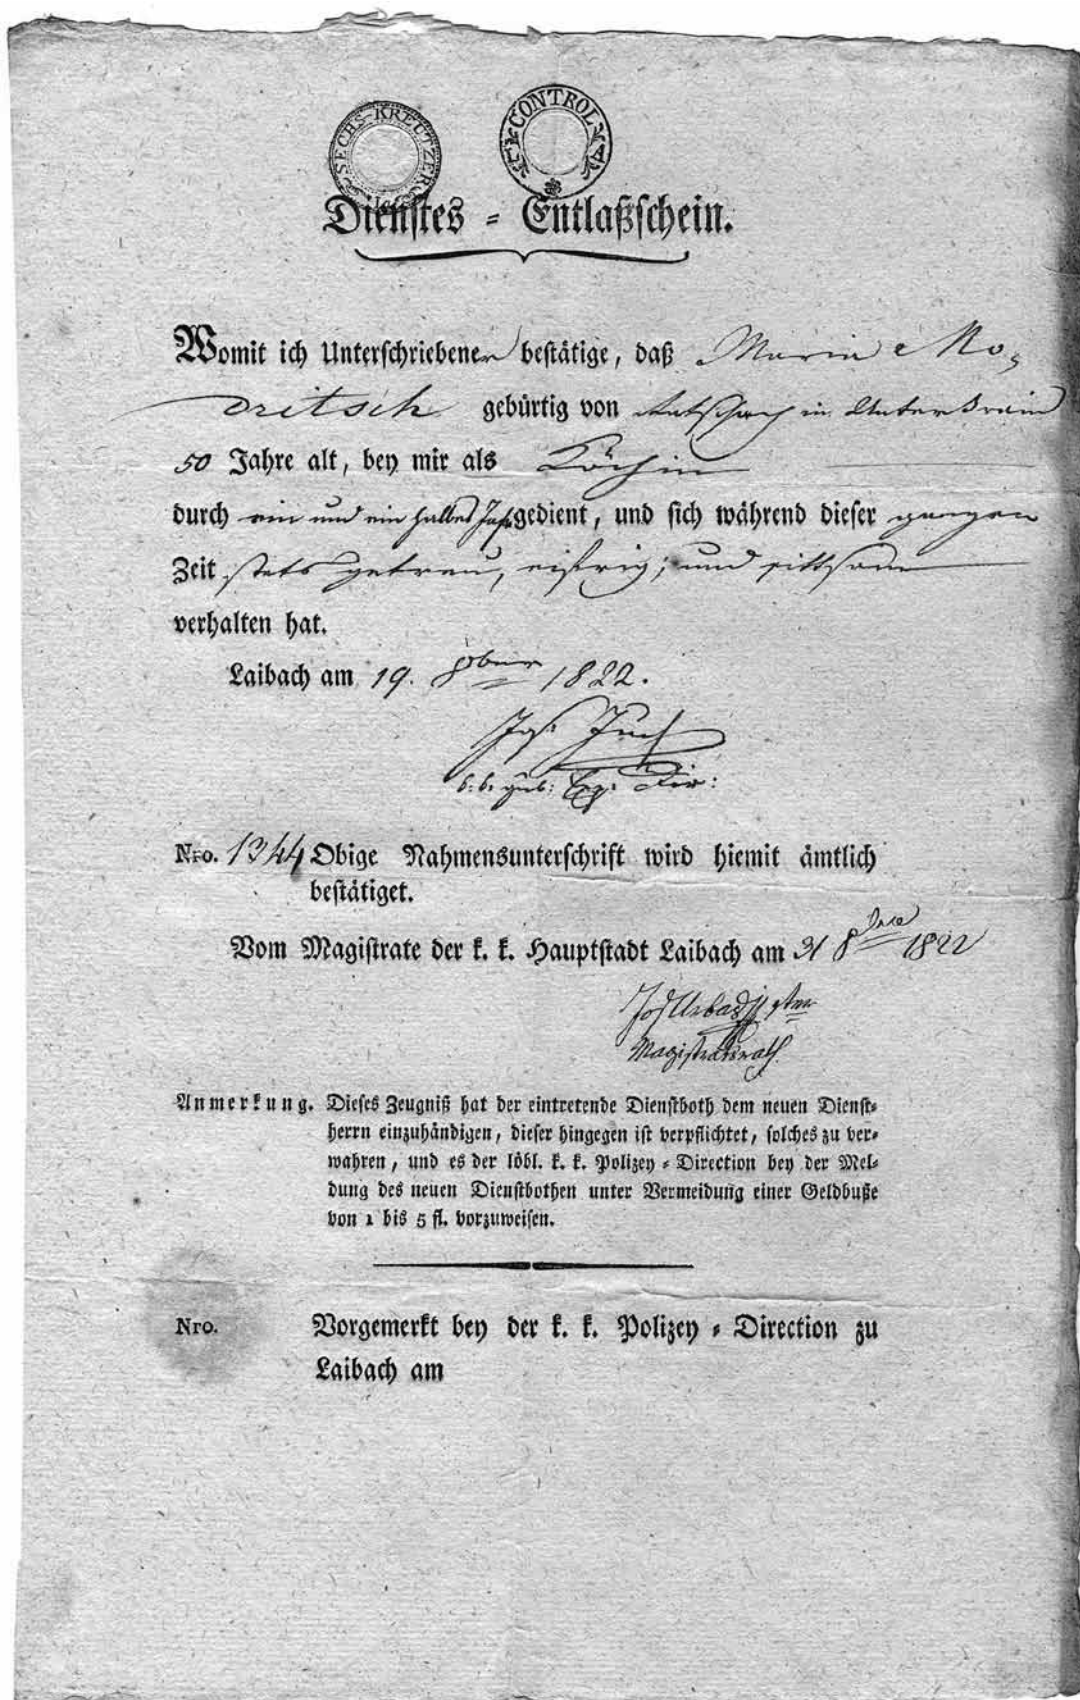 SECHS KREUTZER
CONTROL
Dienstes = Entlaßschein.
Womit ich Unterschriebener bestätige, daß Maria Mo-
dritsch gebürtig von Ratschach in Unterkrain
50 Jahre alt, bey mir als Köchin
durch ein und ein halbes Jahr gedient, und sich während dieser ganzen
Zeit stets getreu, eifrig, und sittsam
verhalten hat.
Laibach am 19. 8ber 1822.
k. k. gub. Exp. Dir:
Nro. 1344 Obige Nahmensunterschrift wird hiemit ämtlich
bestätiget.
Vom Magistrate der k. k. Hauptstadt Laibach am 31 8bre 1822
Magistratsrath
Anmerkung. Dieses Zeugniß hat der eintretende Dienstboth dem neuen Dienst=
herrn einzuhändigen, dieser hingegen ist verpflichtet, solches zu ver=
wahren, und es der löbl. k. k. Polizey = Direction bey der Mel=
dung des neuen Dienstbothen unter Vermeidung einer Geldbuße
von 1 bis 5 fl. vorzuweisen.
Nro. Vorgemerkt bey der k. k. Polizey = Direction zu
Laibach am